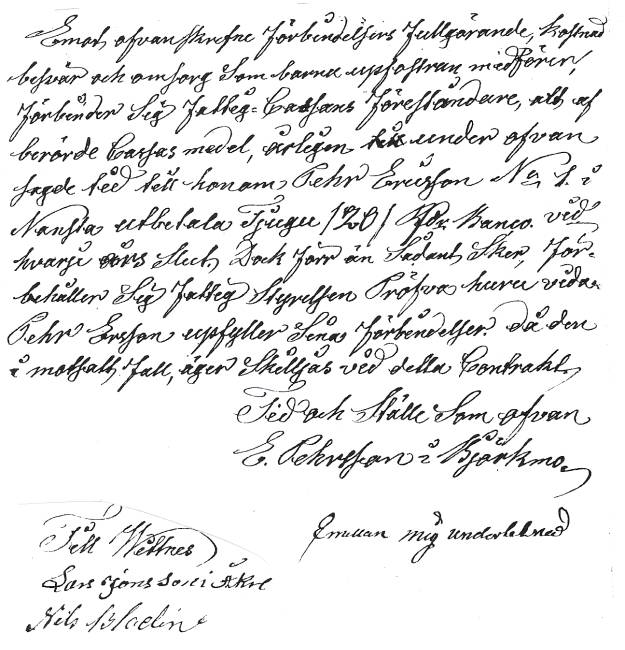 Emot ofvanskrefne Förbindelsers fullgörande, kostnad
besvär och omsorg Som barna upfostran medförer,
Förbinder Sig Fattig=Cassans Föreståndare, att af
berörde Cassas medel, årligen under ofvan
sagde tid till honom Pehr Ericsson No 1. i
Nansta utbetala Tjugu /20/ Rdr Banco. vid
hvarje års Slut, Dock förr än Sådant Sker, För-
behåller Sig Fattig Styrelsen Pröfva huru vida
Pehr Ersson upfyller Sina Förbindelser. då den
i motsatt fall, äger Skilljas vid detta Contrakt,
Tid och Ställe Som ofvan
E. Pehrsson i Björkmo.
Emellan mig undertecknad
Till Wettnes
Lars Jons Son i Åkre
Nils Blodin